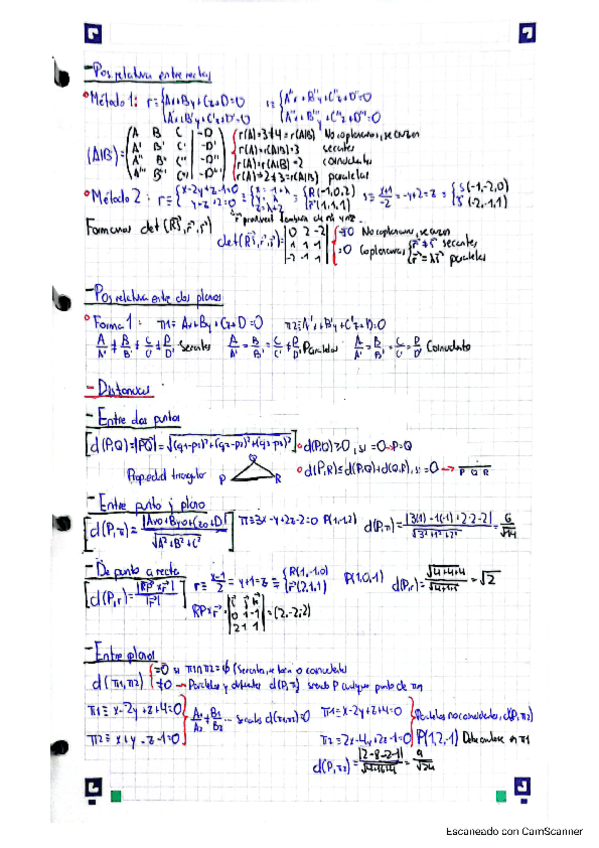 - Pos relativa entre rectas
Método 1: r≡{Ax+By+Cz+D=0 s≡{A''x+B''y+C''z+D''=0
A'x+B'y+C'z+D'=0 A'''x+B'''y+C'''z+D'''=0
(A|B)=
A B C -D r(A)=3≠4=r(A|B) No coplanarias, se cruzan
A' B' C' -D' r(A)=r(A|B)=3 secantes
A'' B'' C'' -D'' r(A)=r(A|B)=2 coincidentes
A''' B''' C''' -D''' r(A)=2≠3=r(A|B) paralelas
Método 2: r≡{x-2y+z-1=0 R(-1,0,2) s≡ x+1/-2 = -y+2=z S(-1,-2,0)
y-z+2=0 z=λ+2 r⃗(1,1,1) s⃗(-2,-1,1)
Formamos det(RS, r⃗, s⃗)
det(RS, r⃗, s⃗)= |0 2 -2| ≠0 No coplanarias, se cruzan
|1 1 1| =0 Coplanarias secantes
|-2 -1 1| paralelas
- Pos relativa entre dos planos
Forma 1: π1≡Ax+By+Cz+D=0 π2≡A'x+B'y+C'z+D'=0
A/A' ≠ B/B' ≠ C/C' ≠ D/D' Secantes A/A' = B/B' = C/C' ≠ D/D' Paralelos A/A' = B/B' = C/C' = D/D' Coincidente
- Distancias
- Entre dos puntos
[d(P,Q)=|PQ|=√(q1-p1)²+(q2-p2)²+(q3-p3)²] d(P,Q)≥0, si =0→P=Q
Propiedad triangular P Q R d(P,R)≤d(P,Q)+d(Q,R), si =0→ P Q R
- Entre punto y plano
[d(P,π)=|Ax0+By0+Cz0+D|/√A²+B²+C²] π≡3x-y+2z-2=0 P(1,-1,2) d(P,π)=|3(1)-1(-1)+2·2-2|/√3²+1²+2² = 6/√14
- De punto a recta
[d(P,r)=|RP×r⃗|/|r⃗|] r≡ x-1/2 = y+1=z ≡ {R(1,-1,0) r⃗(2,1,1) P(1,0,1) d(P,r)=√4+4+4/√4+1+1 = √2
RP×r⃗= |i j k| |0 1 1| |2 1 1| = (2,-2,2)
- Entre planos
d(π1,π2) {=0 si π1∩π2=∅ (Secantes, se cortan o coincidentes)
≠0 → Paralelos y distintos d(P,π2) siendo P cualquier punto de π1
π1≡x-2y+z+4=0 A1/A2 ≠ B1/B2 ... secantes d(π1,π2)=0 π1≡x-2y+z+4=0 Paralelos no coincidentes, d(P,π2)
π2≡x+y-z-1=0 π2≡2x-4y+2z-1=0 P(1,2,-1)
d(P,π2)=|2-8-2-1|/√4+16+4 = 9/√24
Escaneado con CamScanner